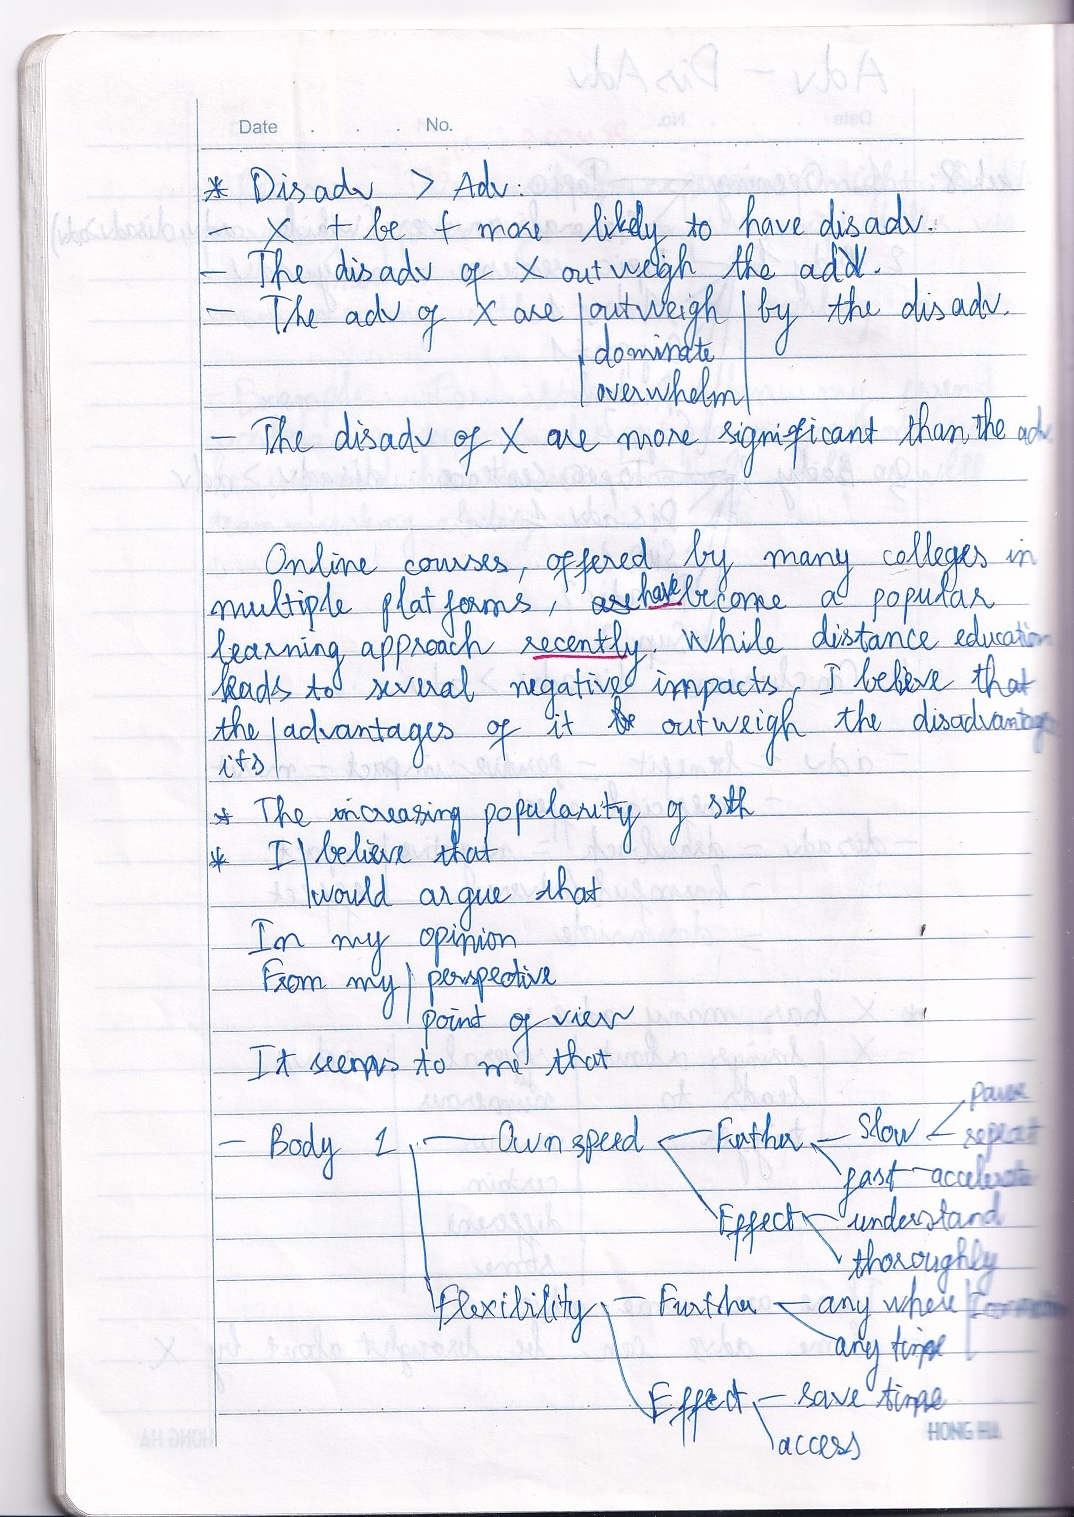 Date . . . No.
* Disadv > Adv:
- X + be + more likely to have disadv.
- The disadv of X outweigh the adv.
- The adv of X are | outweigh | by the disadv.
dominate
overwhelm
- The disadv of X are more significant than the adv
Online courses, offered by many colleges in
multiple platforms, have become a popular
learning approach recently. While distance education
leads to several negative impacts, I believe that
the | advantages of it outweigh the disadvantages
its
* The increasing popularity of sth
* I | believe that
would argue that
In my opinion
From my | perspective
point of view
It seems to me that
- Body 1 - Own speed - Further - Slow < pause
repeat
fast - accelerate
Effect - understand
thoroughly
Flexibility - Further - any where
any time
Effect - save time
access
HONG HA